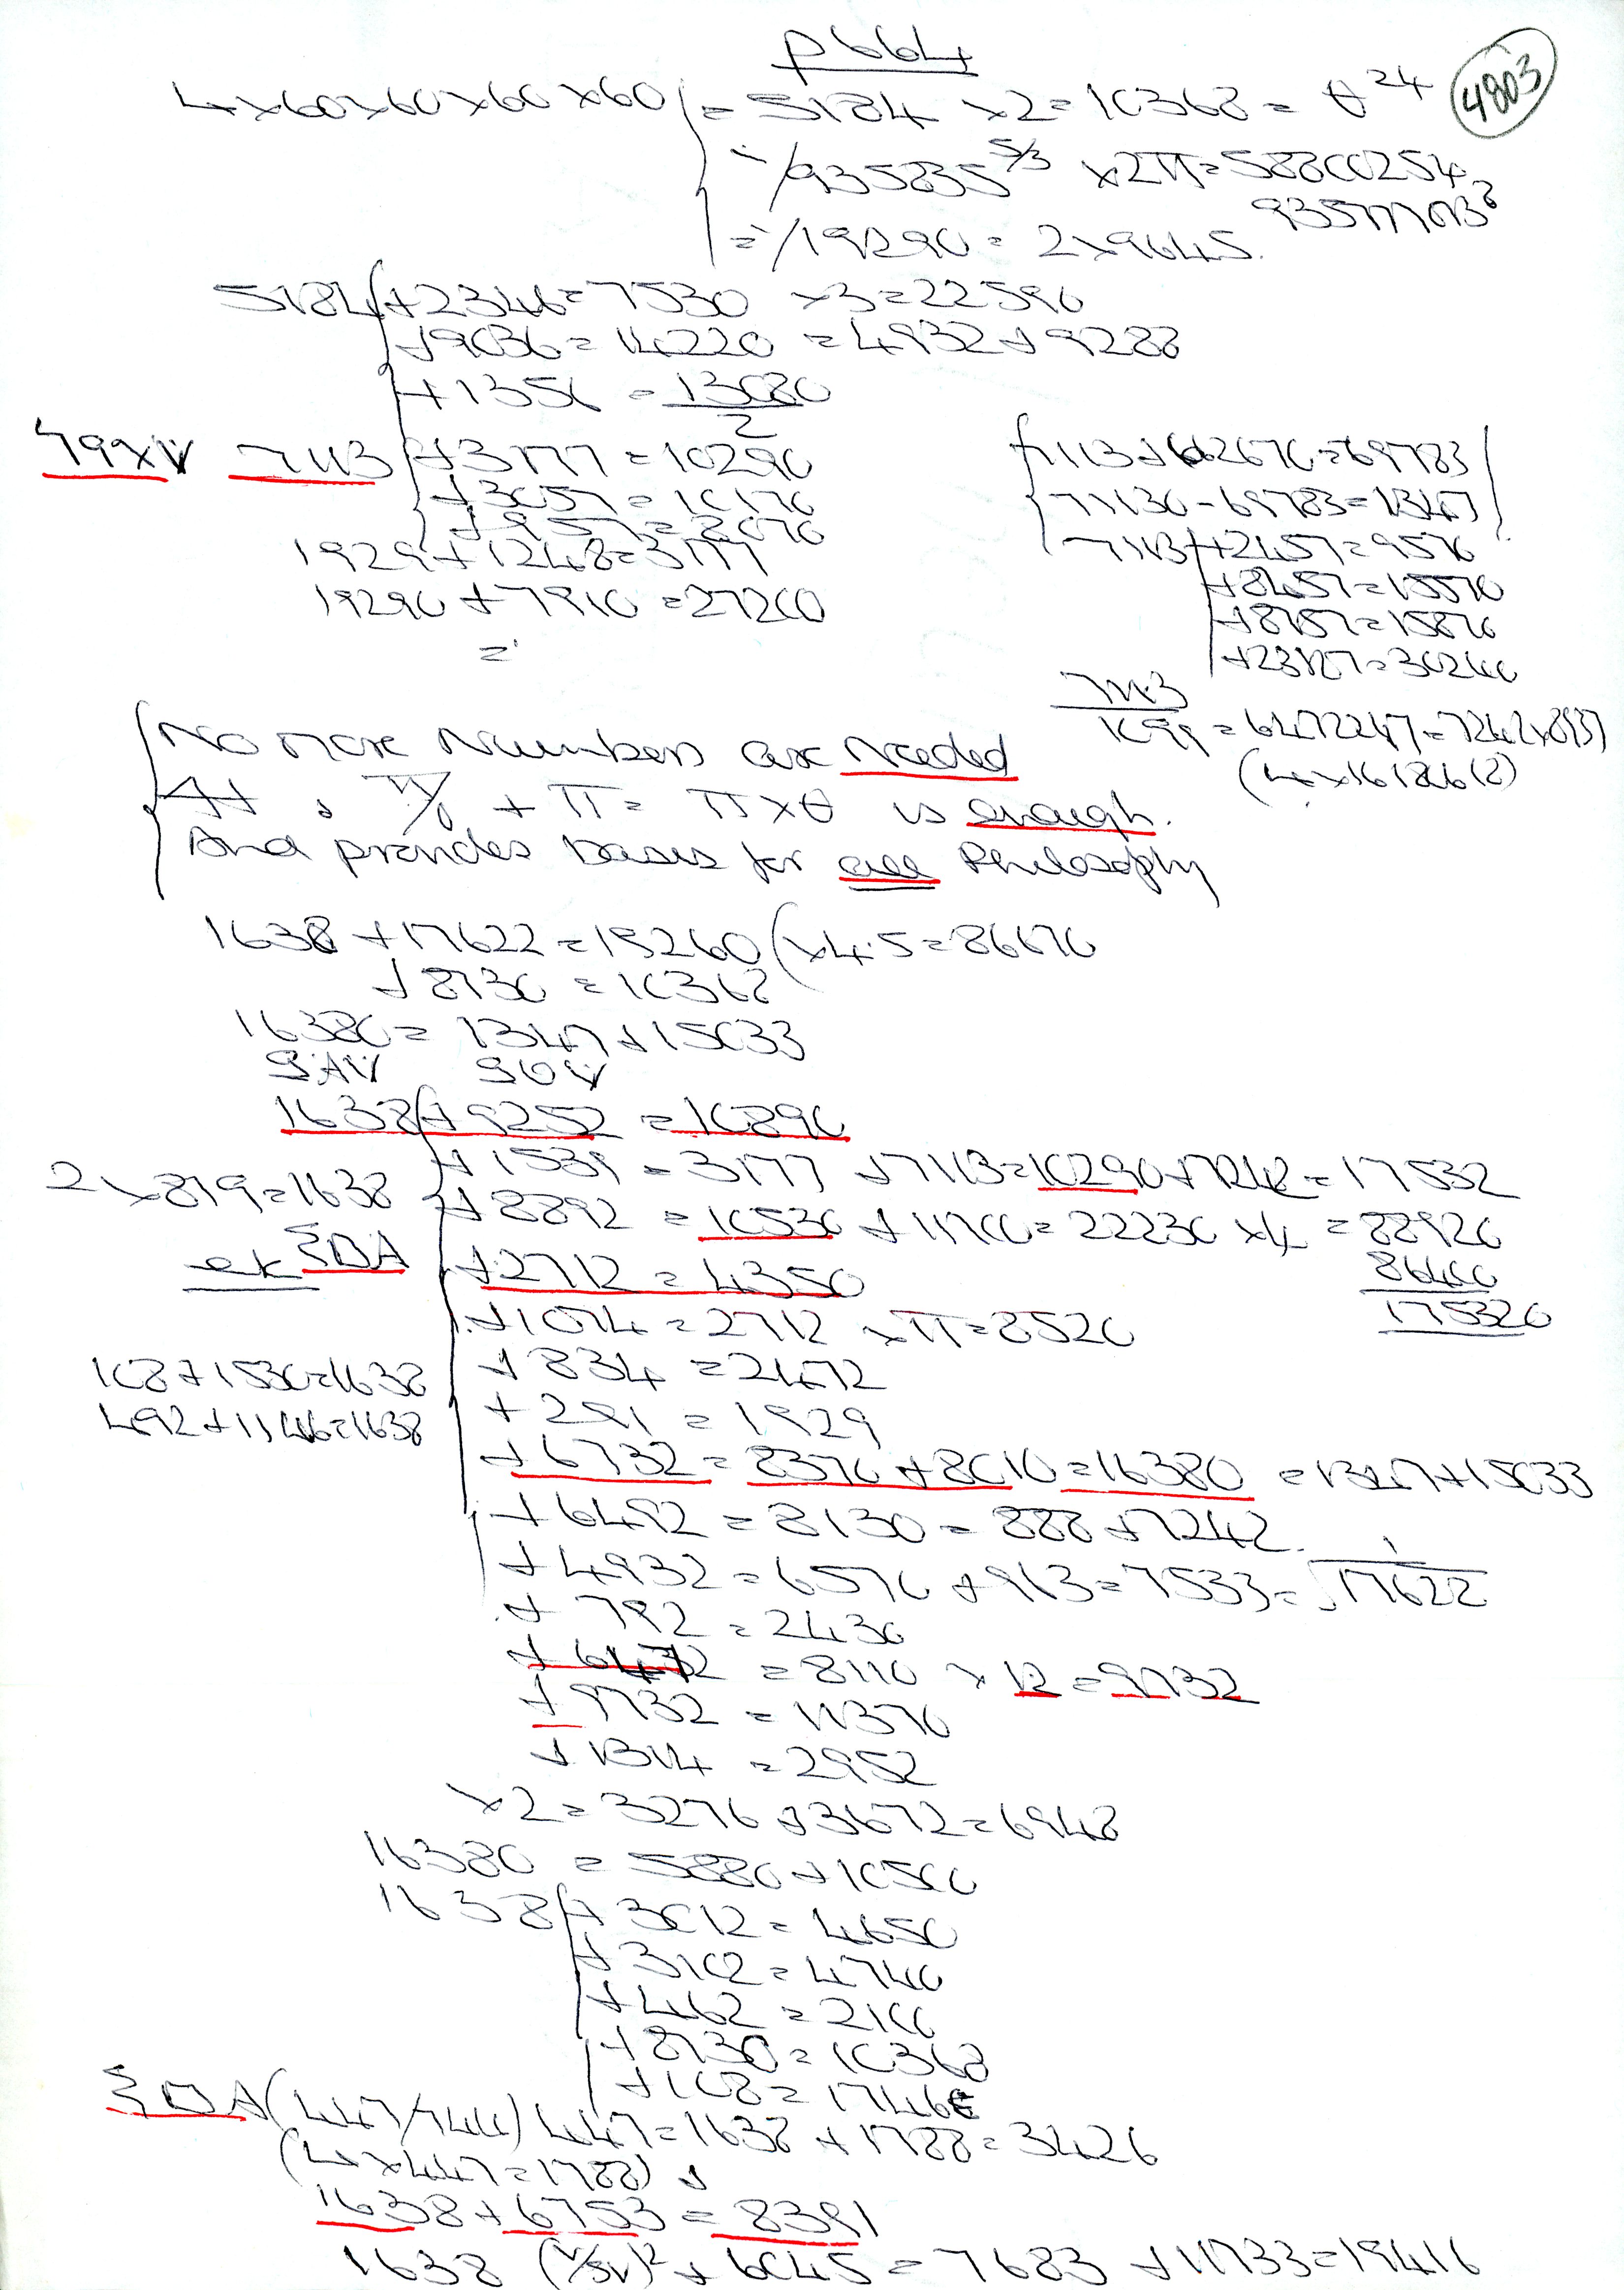 p664
4803
4×60×60×60×60 = 5184 ×2 = 10368 = θ²⁴
= 1/935835^5/3 ×2π = 58800254
= 1/19290 = 2×9645.
5184 + 2346 = 7530 ×3 = 22590
+ 9036 = 14220 = 4932 + 9288
+ 1356 = 13080/2
7113 + 3177 = 10290
+ 3057 = 10170
+ 957 = 8070
1929 + 1248 = 3177
19290 + 7910 = 27200
=
7113 + 62670 = 69783
71130 - 69783 = 1347
7113 + 2457 = 9570
+ 8457 = 15570
+ 8757 = 15870
+ 23127 = 30240
No more Numbers are Needed
π + π = π×θ is enough.
And provides Bases for all Philosophy
1638 + 17622 = 19260 (×4.5 = 86670
+ 8730 = 10368
16380 = 1347 + 15033
1638 + 9252 = 10890
2×819 = 1638
+ 1539 = 3177 + 7113 = 10290 + 7242 = 17532
+ 8892 = 10530 + 11700 = 22230 ×4 = 88920
86400
175320
ek
+ 2712 = 4350
+ 1074 = 2712 ×π = 8520
108 + 1530 = 1638
+ 834 = 2472
492 + 1146 = 1638
+ 291 = 1929
+ 6732 = 8370 + 8010 = 16380 = 1347 + 15033
+ 6492 = 8130 = 888 + 7242.
+ 4932 = 6570 + 963 = 7533 = 1/√17622
+ 792 = 2430
+ 6472 = 8110 × 12 = 9732
+ 9732 = 11370
+ 1314 = 2952
×2 = 3276 + 3672 = 6948
16380 = 5880 + 10500
1638 + 3012 = 4650
+ 3102 = 4740
+ 462 = 2100
+ 8730 = 10368
+ 108 = 1746
447 = 1638 + 1788 = 3426
(4×447 = 1788)
1638 + 6753 = 8391
1638 + 6045 = 7683 + 11733 = 19416